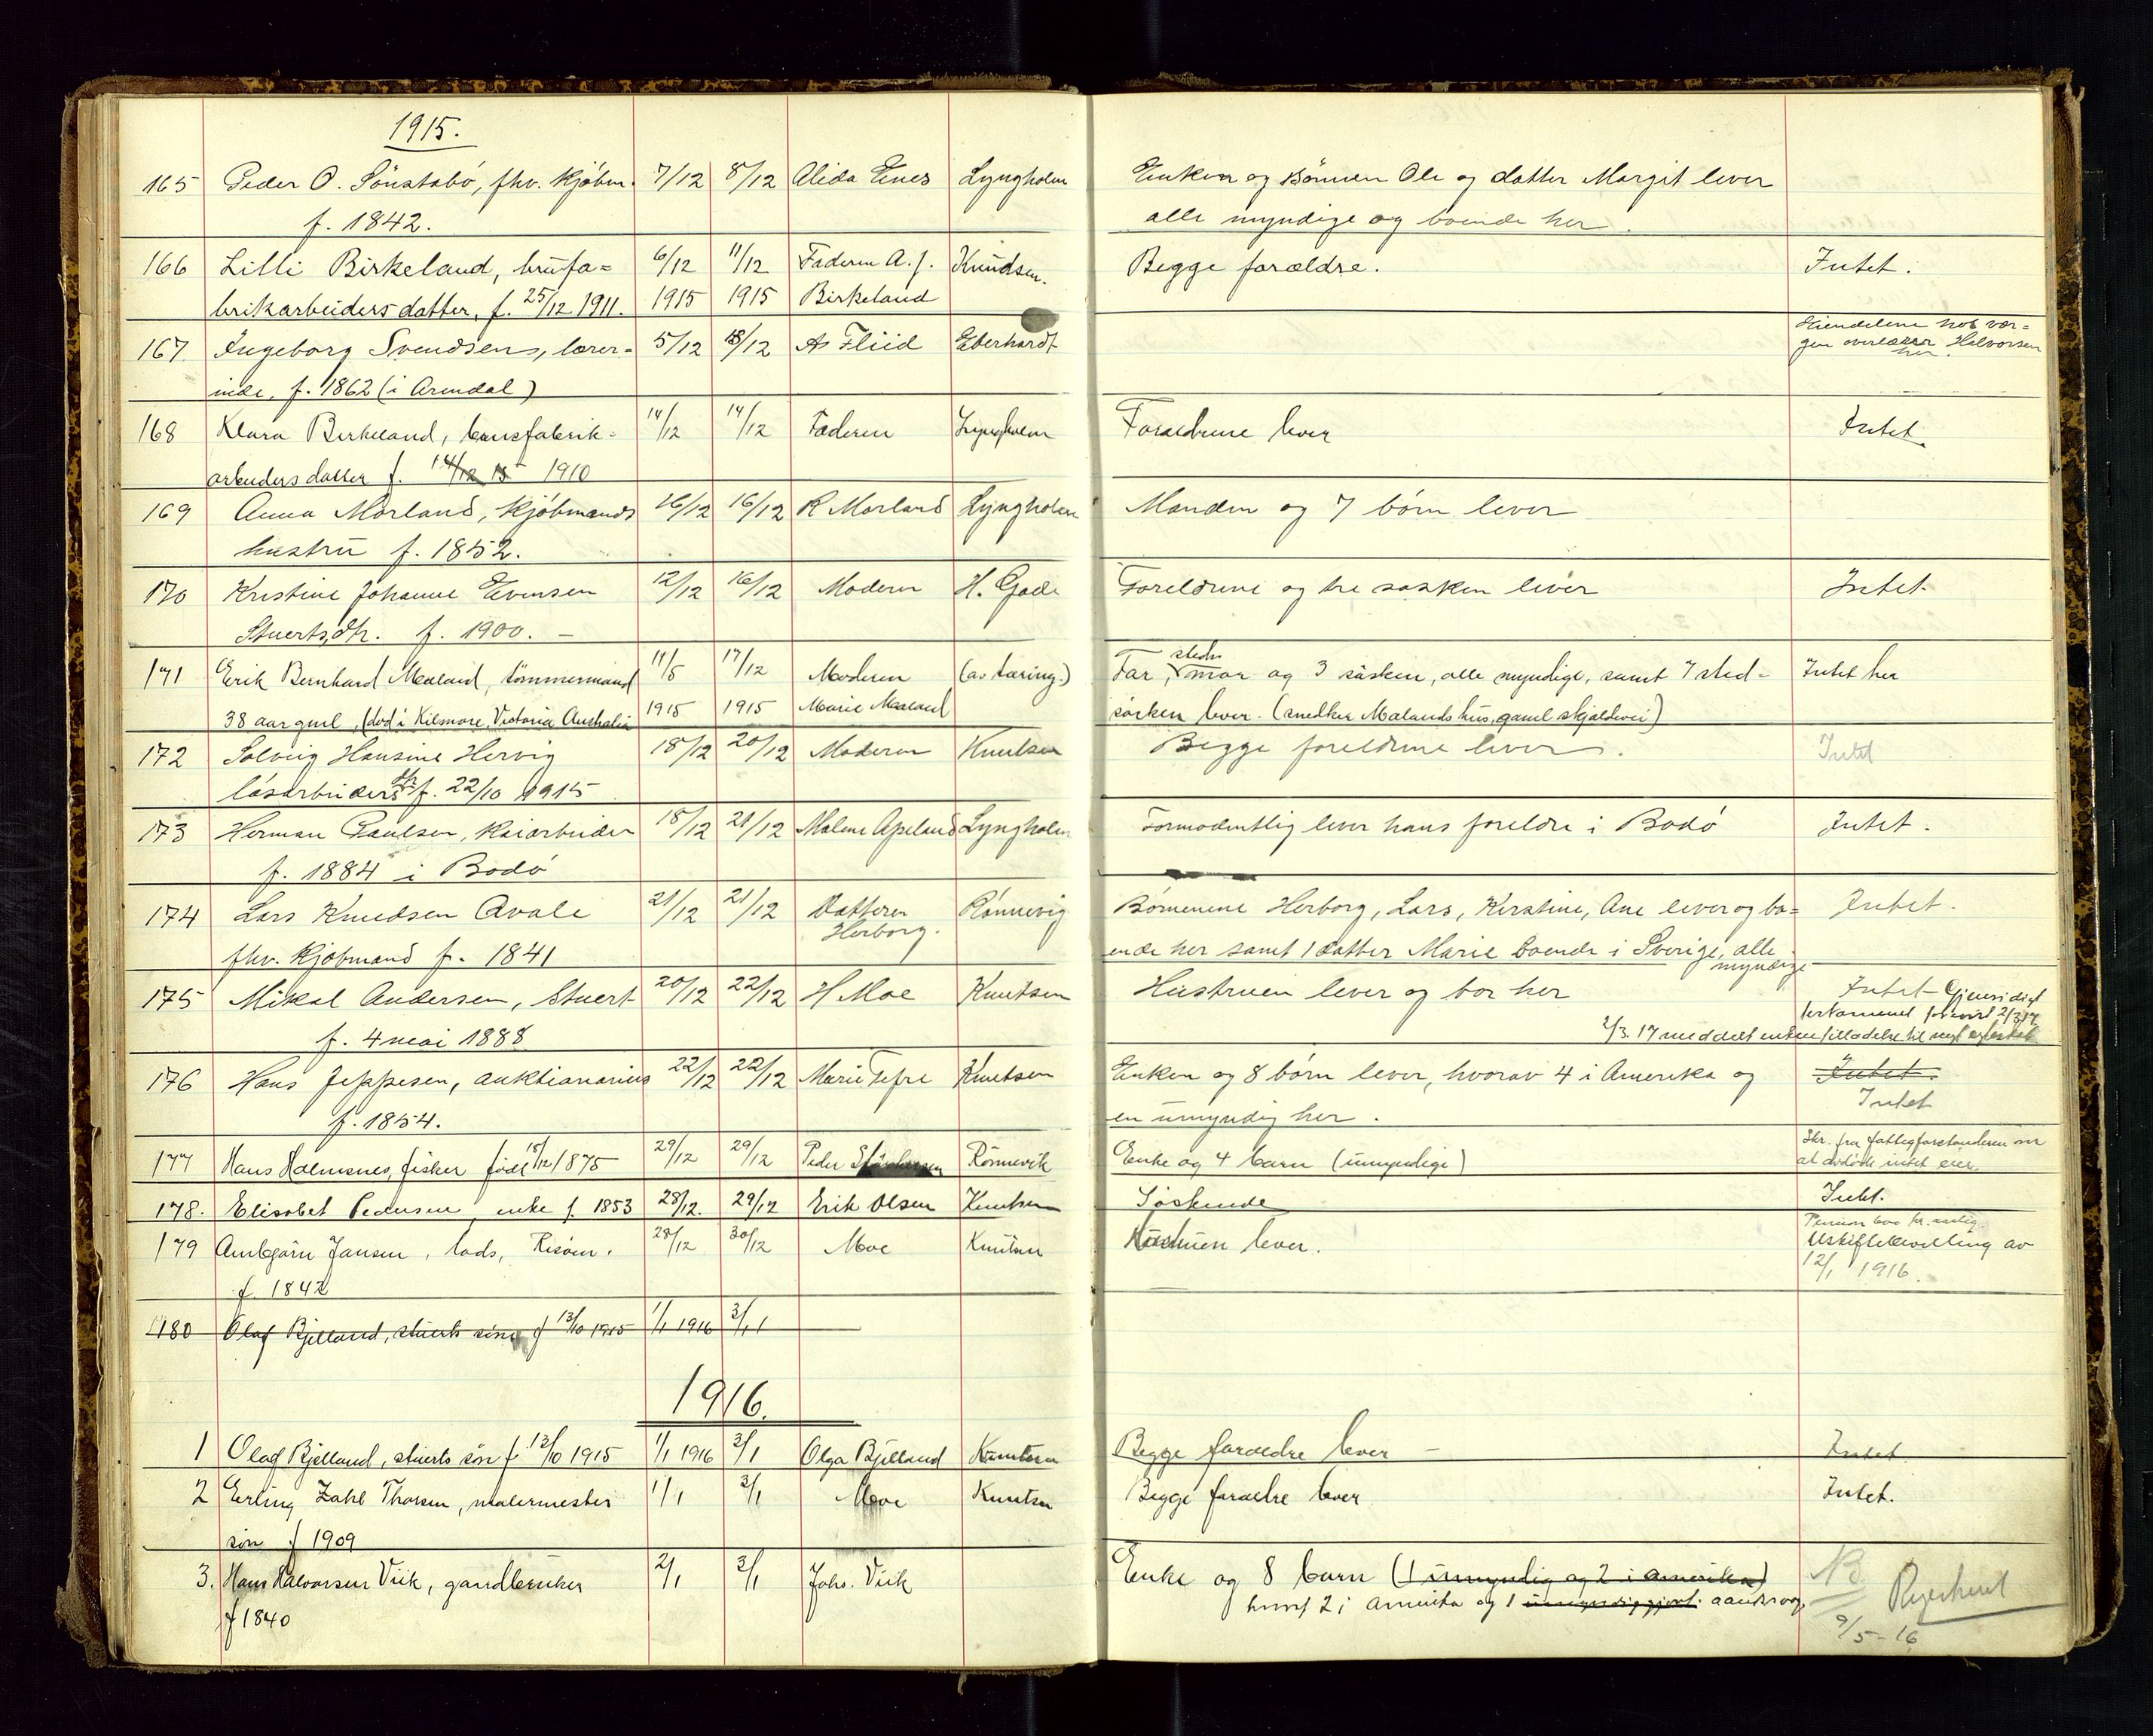 1915.
165 Peder O. Sönstabö, fhv. kjöbm. 7/12 8/12 Alida Enes Lyngholm Enken og sönnen Ole og datter Margit lever
f. 1842. alle myndige og boende her.
166 Lilli Birkeland, 6/12 11/12 Faderen A. J. Knudsen. Begge forældre. Intet.
brikarbeiders datter, f. 25/12 1911. 1915 1915 Birkeland
167 Ingeborg Svendsen, lærer= 5/12 13/12 Eberhardt Eiendelene hos vær=
inde, f. 1862 (i Arendal) gen overlærer Halvorsen
her.
168 Klara Birkeland, 14/12 14/12 Faderen Lyngholm Forældrene lever Intet.
arbeiders datter f. 14/12 15 1910
169 Anna Mörland, kjöbmands 16/12 16/12 R Mörland Lyngholm Manden og 7 börn lever
hustru f. 1852.
170 Kristine Johanne Evensen 12/12 16/12 Moderen H. Gade Foreldrene og tre søsken lever Intet.
Stuerts dtr. f. 1900.
171 Erik Bernhard Maland, tömmermand 11/5 17/12 Moderen (av tæring.) Far, stedmor og 3 sösken, alle myndige, samt 7 sted= Intet her
38 aar gml, (död i Kilmore, Victoria Australia 1915 1915 Marie Maaland sösken lever. (snedker Malands hus, gaml skjoldvei)
172 Solveig Hansine Hervig 18/12 20/12 Moderen Knutsen Begge foreldrene lever. Intet
läsarbeiders dtr f. 22/10 1915
173 Herman Paulsen, kaiarbeider 18/12 21/12 Malene Apeland Lyngholm Formodentlig lever hans foreldre i Bodö Intet.
f. 1884 i Bodö
174 Lars Knudsen Kvale 21/12 21/12 Datteren Rönnevig Börnenene Herborg, Lars, Kirstine, Ane lever og bo= Intet.
Herborg.
fhv. kjöbmand f. 1841 ende her samt 1 datter Marie boende i Sverige, alle
myndige
175 Mikal Andersen, Stuert 20/12 22/12 H Moe Knutsen Hustruen lever og bor her Intet Gjensidigt
f. 4 mai 1888 2/3. 17 meddelt enken tilladelse til nyt egteskab
176 Hans Jeppesen, auktionarius 22/12 22/12 Marie Tefre Knutsen Enken og 8 börn lever, hvorav 4 i Amerika og Intet.
f. 1854. en umyndig her. Intet
177 Hans Holmsnes, fisker födt 18/12 1875 29/12 29/12 Peder Rönnevik Enke og 4 barn (umyndige) Skr. fra fattigforstanderen om
at avdöde intet eier.
178. Elisabet Pedersen enke f. 1853 28/12. 29/12 Erik Olsen Knutsen Söskende Intet.
179 Jansen, lods, Risöen. 28/12 30/12 Moe Knutsen Hustruen lever. Pension
Uskiftebevilling av
f. 1842 12/1 1916.
180 Olaf Bjelland, stuerts sön f 13/10 1915 1/1 1916 3/1
1916.
1 Olaf Bjelland, stuerts sön f. 13/10 1915 1/1 1916 3/1 Olga Bjelland Knutsen Begge forældre lever Intet
2 Erling Zahl Thorsen, malermester 1/1 3/1 Moe Knutsen Begge forældre lever Intet.
sön f 1909
3. Hans Halvorsen Viik, gaardbruker 2/1 3/1 Johs. Viik Enke og 8 barn (1 umyndig og 2 i Amerika) NB
f 1840 hvoraf 2 i Amerika og 1
9/5-16